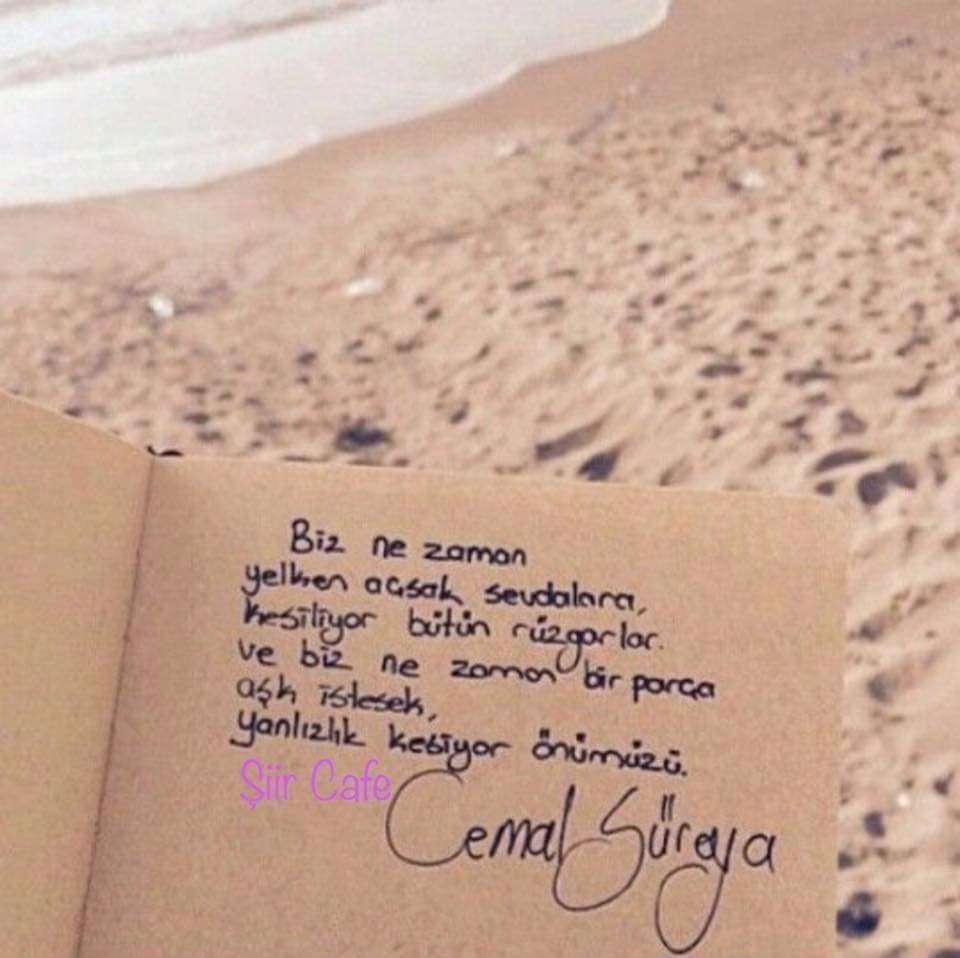 Biz ne zaman
yelken açsak sevdalara,
kesiliyor bütün rüzgarlar.
ve biz ne zaman bir parça
aşk istesek,
yanlızlık kesiyor önümüzü.
Şiir Cafe
Cemal Süreya